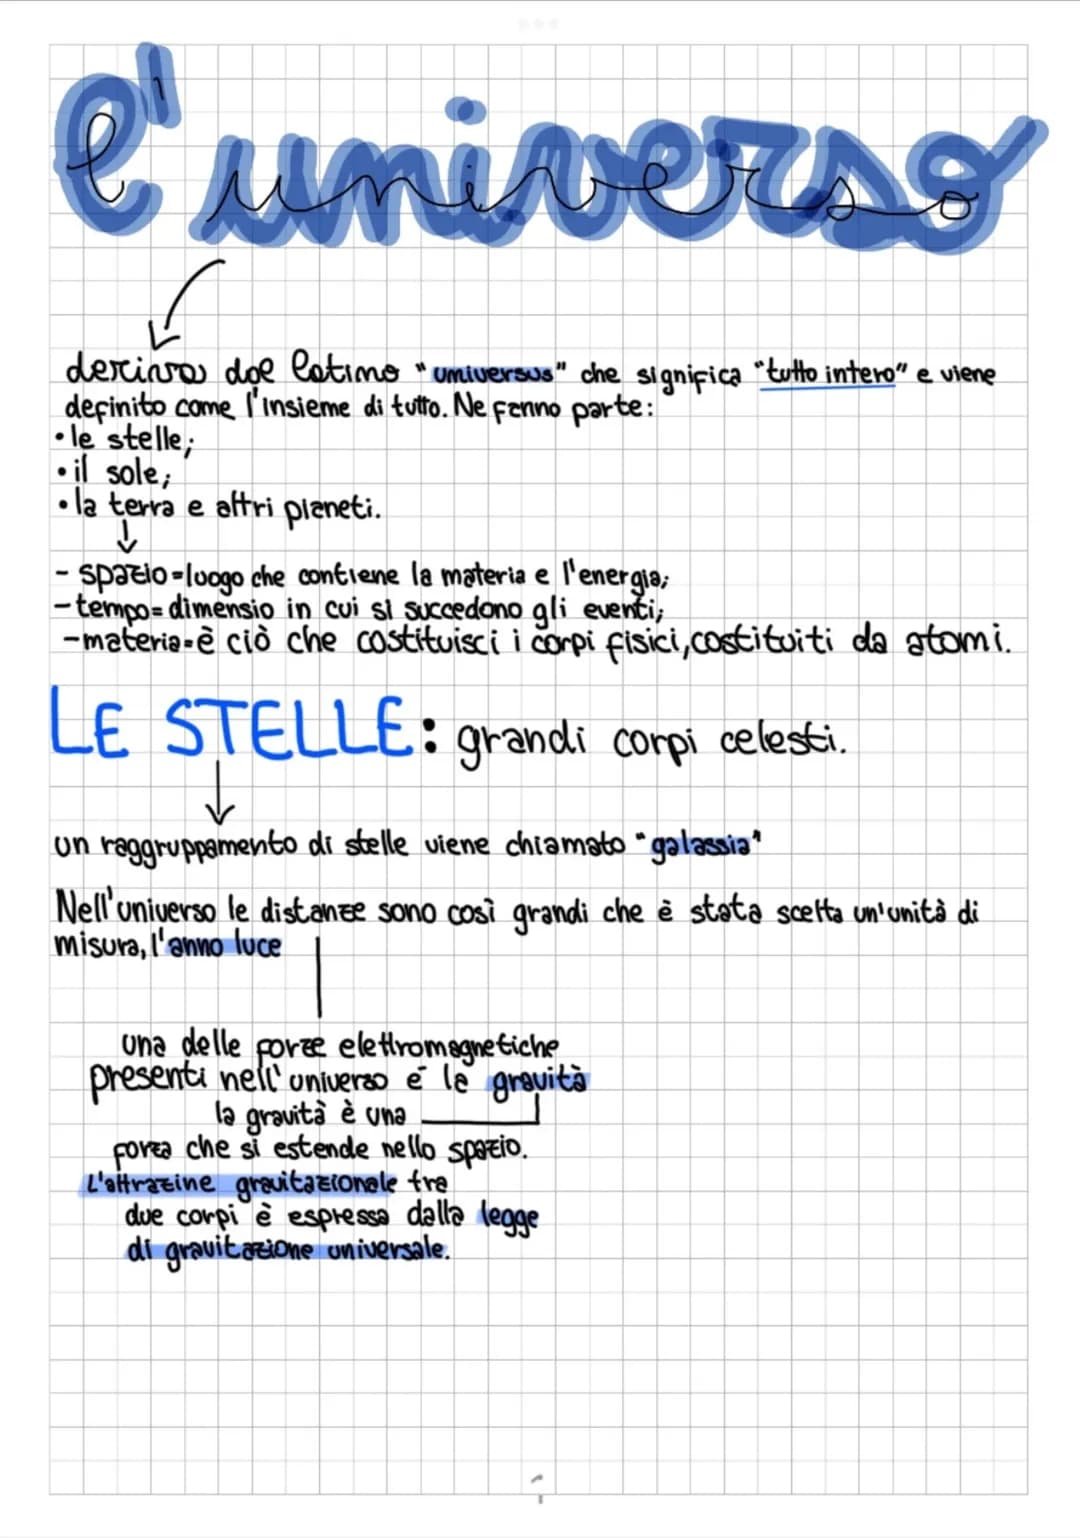 l'universo
deriva dal latino "universus" che significa "tutto intero" e viene
definito come l'insieme di tutto. Ne fanno parte:
• le stelle;
• il sole;
• la terra e altri pianeti.
- spazio=luogo che contiene la materia e l'energia;
- tempo= dimensio in cui si succedono gli eventi;
- materia=è ciò che costituisci i corpi fisici, costituiti da atomi.
LE STELLE: grandi corpi celesti.
un raggruppamento di stelle viene chiamato "galassia"
Nell'universo le distanze sono così grandi che è stata scelta un'unità di
misura, l'anno luce
una delle forze elettromagnetiche
presenti nell'universo è la gravità
la gravità è una
forza che si estende nello spazio.
L'attrazine gravitazionale tra
due corpi è espressa dalla legge
di gravitazione universale.